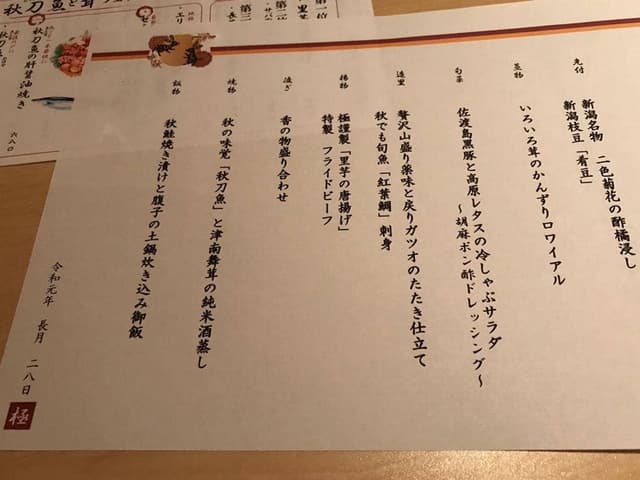 先付
新潟名物 二色菊花の酢橘浸し
新潟枝豆「肴豆」
蒸物
いろいろ茸のかんずりロワイアル
旬菜
佐渡島黒豚と高原レタスの冷しゃぶサラダ
～胡麻ポン酢ドレッシング～
造里
贅沢山盛り薬味と戻りガツオのたたき仕立て
秋でも旬魚「紅葉鯛」刺身
揚物
極謹製「里芋の唐揚げ」
特製 フライドビーフ
凌ぎ
香の物盛り合わせ
焼物
秋の味覚「秋刀魚」と津南舞茸の純米酒蒸し
飯物
秋鮭焼き漬けと腹子の土鍋炊き込み御飯
令和元年 長月 二八日
極
第一位
第二
第三
秋刀魚の肝醤油焼き
六八〇